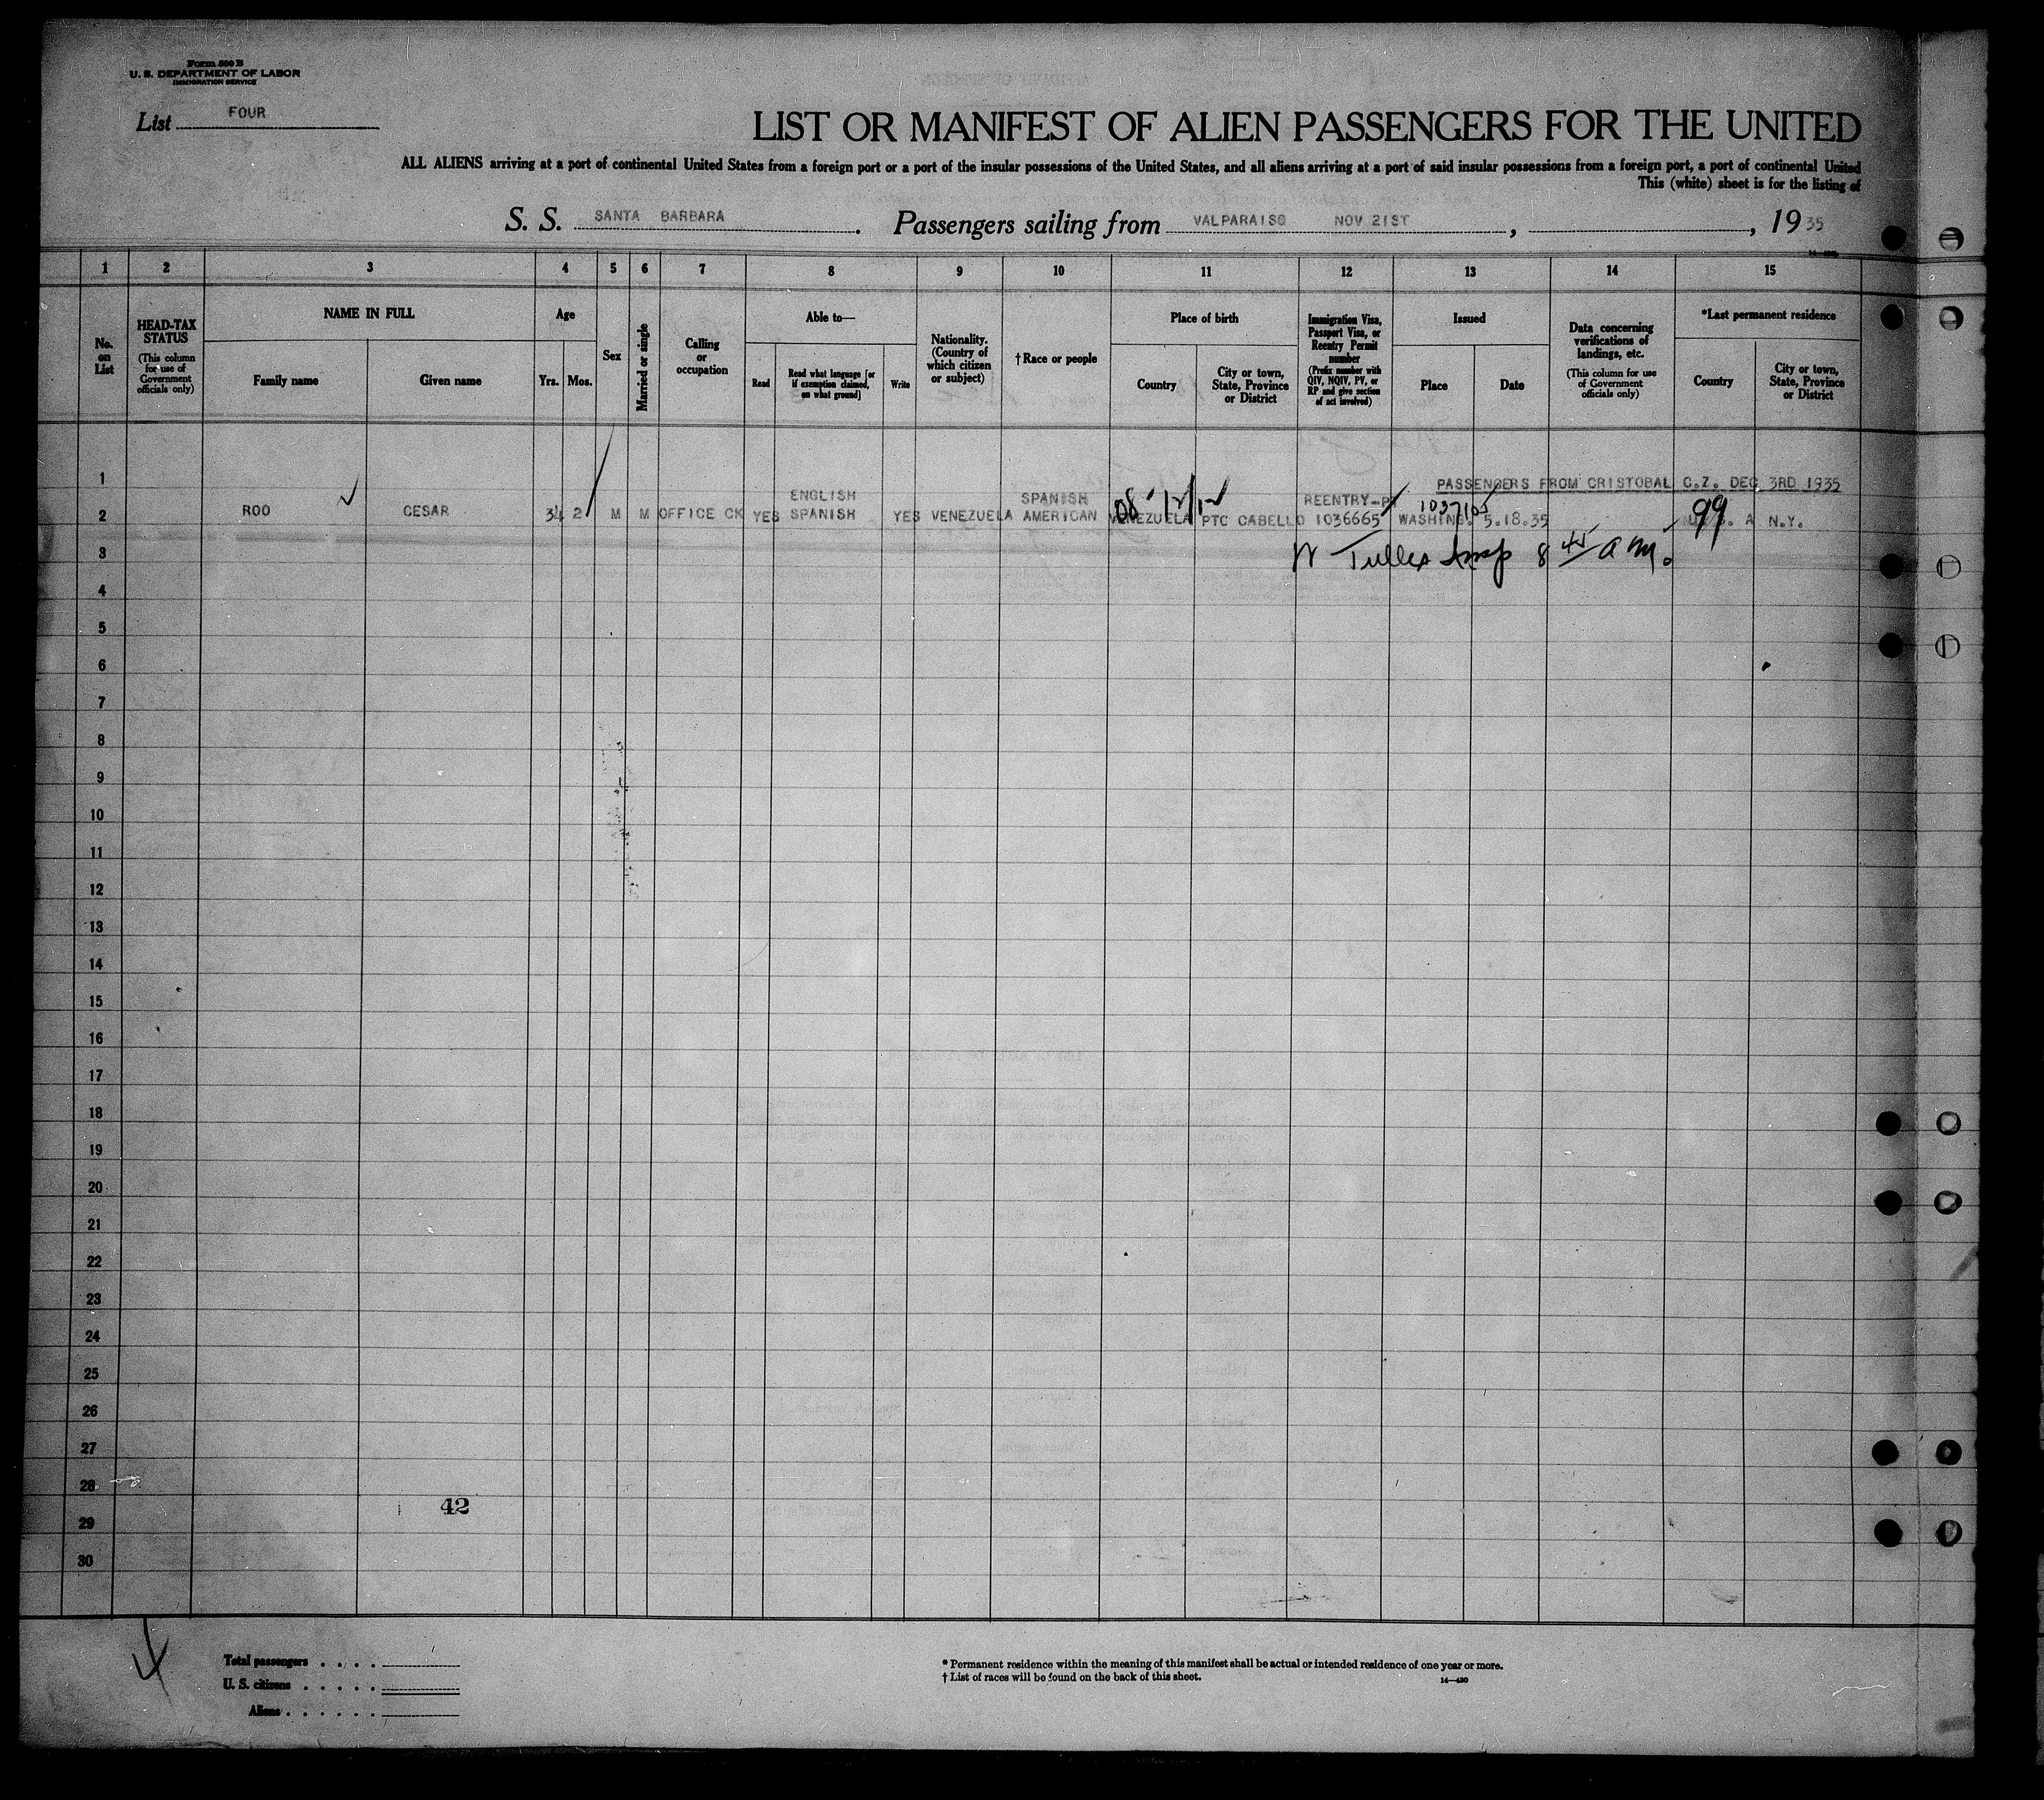 Form 500 B
U. S. DEPARTMENT OF LABOR
IMMIGRATION SERVICE
List FOUR
LIST OR MANIFEST OF ALIEN PASSENGERS FOR THE UNITED
ALL ALIENS arriving at a port of continental United States from a foreign port or a port of the insular possessions of the United States, and all aliens arriving at a port of said insular possessions from a foreign port, a port of continental United
This (white) sheet is for the listing of
S. S. SANTA BARBARA. Passengers sailing from VALPARAISO NOV 21ST, , 1935
1 2 3 4 5 6 7 8 9 10 11 12 13 14 15
No. on List
HEAD-TAX STATUS (This column for use of Government officials only)
NAME IN FULL
Family name
Given name
Age
Yrs. Mos.
Sex
Married or single
Calling or occupation
Able to—
Read
Read what language [or if exemption claimed, on what ground]
Write
Nationality. (Country of which citizen or subject)
† Race or people
Place of birth
Country
City or town, State, Province or District
Immigration Visa, Passport Visa, or Reentry Permit number (Prefix number with QIV, NQIV, PV, or RP and give section of act involved)
Issued
Place
Date
Data concerning verifications of landings, etc. (This column for use of Government officials only)
*Last permanent residence
Country
City or town, State, Province or District
1 PASSENGERS FROM CRISTOBAL C.Z. DEC 3RD 1935
ENGLISH SPANISH REENTRY-P
2 ROO CESAR 34 2 M M OFFICE CK YES SPANISH YES VENEZUELA AMERICAN VENEZUELA PTC CABELLO 1036665 WASHING. 5.18.35 U. S. A N.Y.
99
3 8 45 a m.
4
5
6
7
8
9
10
11
12
13
14
15
16
17
18
19
20
21
22
23
24
25
26
27
28
42
29
30
4
Total passengers . . . .
U. S. citizens . . . . .
Aliens . . . . . .
* Permanent residence within the meaning of this manifest shall be actual or intended residence of one year or more.
† List of races will be found on the back of this sheet.
14—430